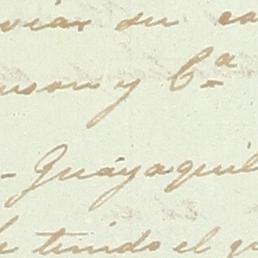 viar su ca
uson y C.ª
- Guayaquil
tenido el g